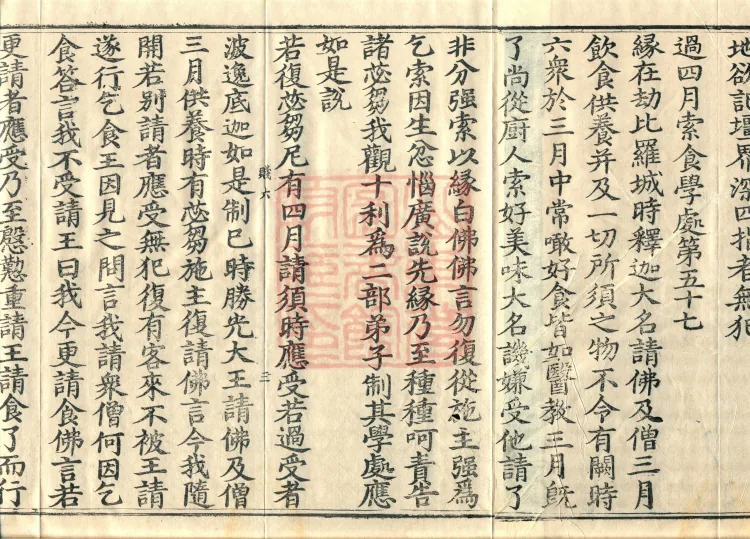 地欲
過四月索食學處第五十七
緣在劫比羅城時釋迦大名請佛及僧三月
飲食供養并及一切所須之物不令有闕時
六衆於三月中常噉好食皆如醫教三月旣
了尚從厨人索好美味大名譏嫌受他請了
非分强索以緣白佛佛言勿復從施主强爲
乞索因生忿惱廣說先緣乃至種種呵責告
諸苾芻我觀十利爲二部弟子制其學處應
如是說
若復苾芻尼有四月請須時應受若過受者
波逸底迦如是制已時勝光大王請佛及僧
賤六
三
三月供養時有苾芻施主復請佛言今我隨
開若別請者應受無犯復有客來不被王請
遂行乞食王因見之問言我請衆僧何因乞
食荅言我不受請王曰我今更請食佛言若
更請者應受乃至慇懃重請王請食了而行